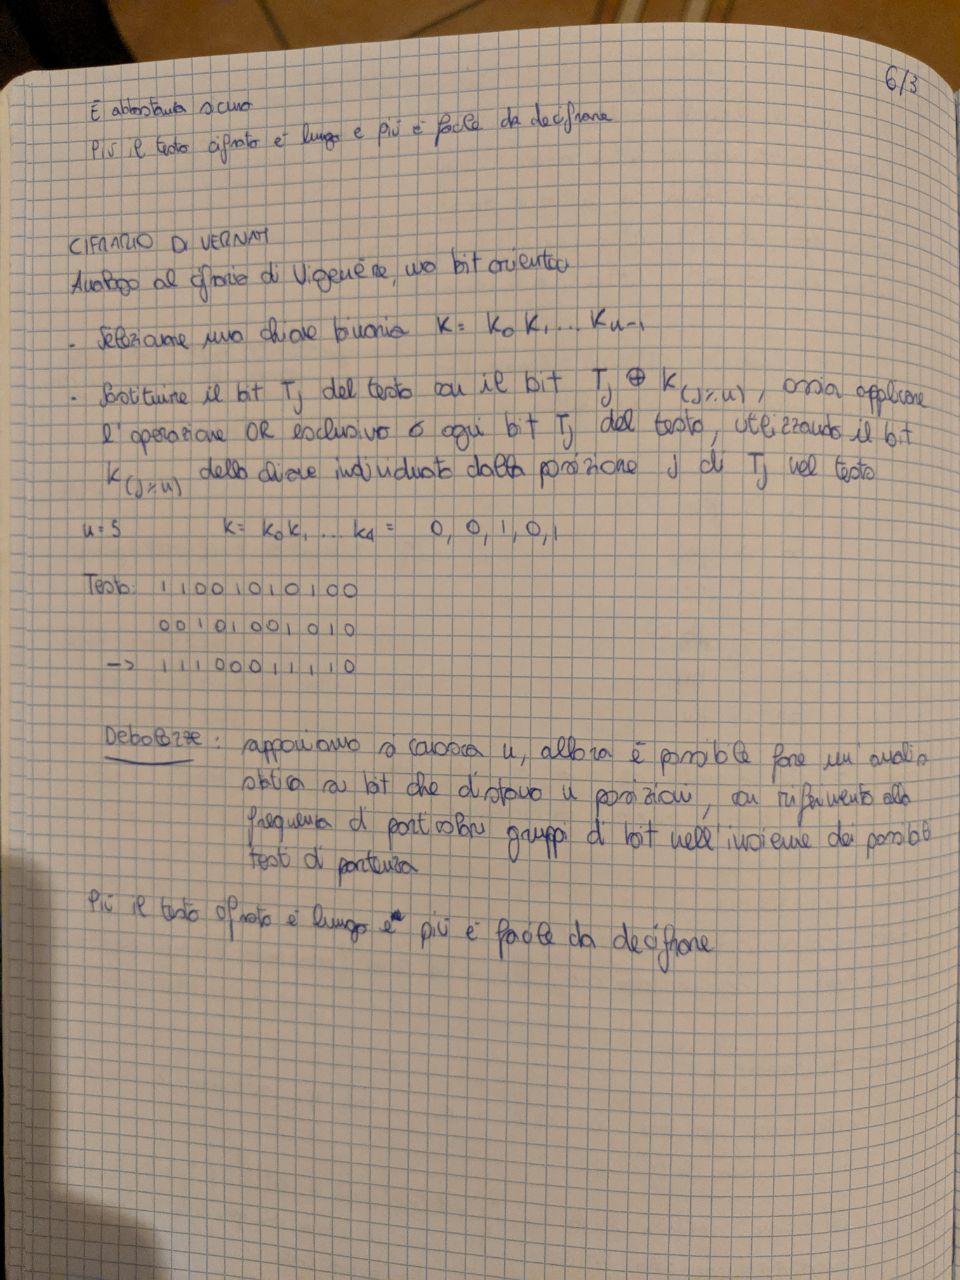 6/3
È abbastanza sicuro
Più il testo cifrato è lungo e più è facile da decifrare
CIFRARIO DI VERNAM
Analogo al cifrario di Vigenère, ma bit oriented
- Selezionare una chiave binaria K = K₀ K₁ ... Kₙ₋₁
- Sostituire il bit Tⱼ del testo con il bit Tⱼ ⊕ K(j%n), ossia applicare
l'operazione OR esclusivo a ogni bit Tⱼ del testo, utilizzando il bit
K(j%n) della chiave individuato dalla posizione j di Tⱼ nel testo
n=5 K= K₀K₁ ... K₄ = 0, 0, 1, 0, 1
Testo: 1 1 0 0 1 0 1 0 1 0 0
0 0 1 0 1 0 0 1 0 1 0
-> 1 1 1 0 0 0 1 1 1 1 0
Debolezze: supponiamo si conosca n, allora è possibile fare un'analisi
statistica su bit che distano n posizioni, con riferimento alla
frequenza di particolari gruppi di bit nell'insieme dei possibili
testi di partenza
Più il testo cifrato è lungo e più è facile da decifrare